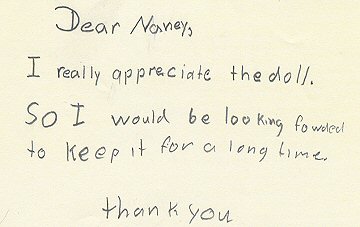 Dear Nancy,
I really appreciate the doll.
So I would be looking fowded
to keep it for a long time.
thank you